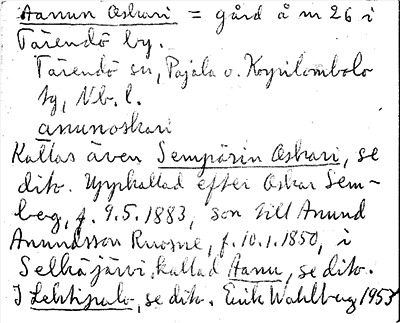 Aanun Oskari = gård å m 26 i
Tärendö by.
Tärendö sn, Pajala o. Korpilombolo
tg, Nb. l.
ānunoskari
Kallas även Sempärin Oskari, se
dito. Uppkallad efter Oskar Sem-
berg, f. 9.5.1883, son till Anund
Anundsson Ruosne, f. 10.1.1850, i
Selkäjärvi, kallad Aanu, se dito.
I Lehtipalo, se dito. Erik Wahlberg 1953